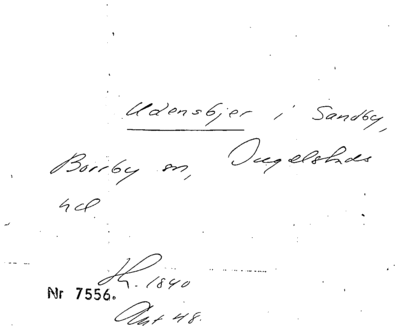 Udensbjer i Sandby,
Borrby sn, Ingelstads
hd.
1840
Nr 7556.
Ant 48.